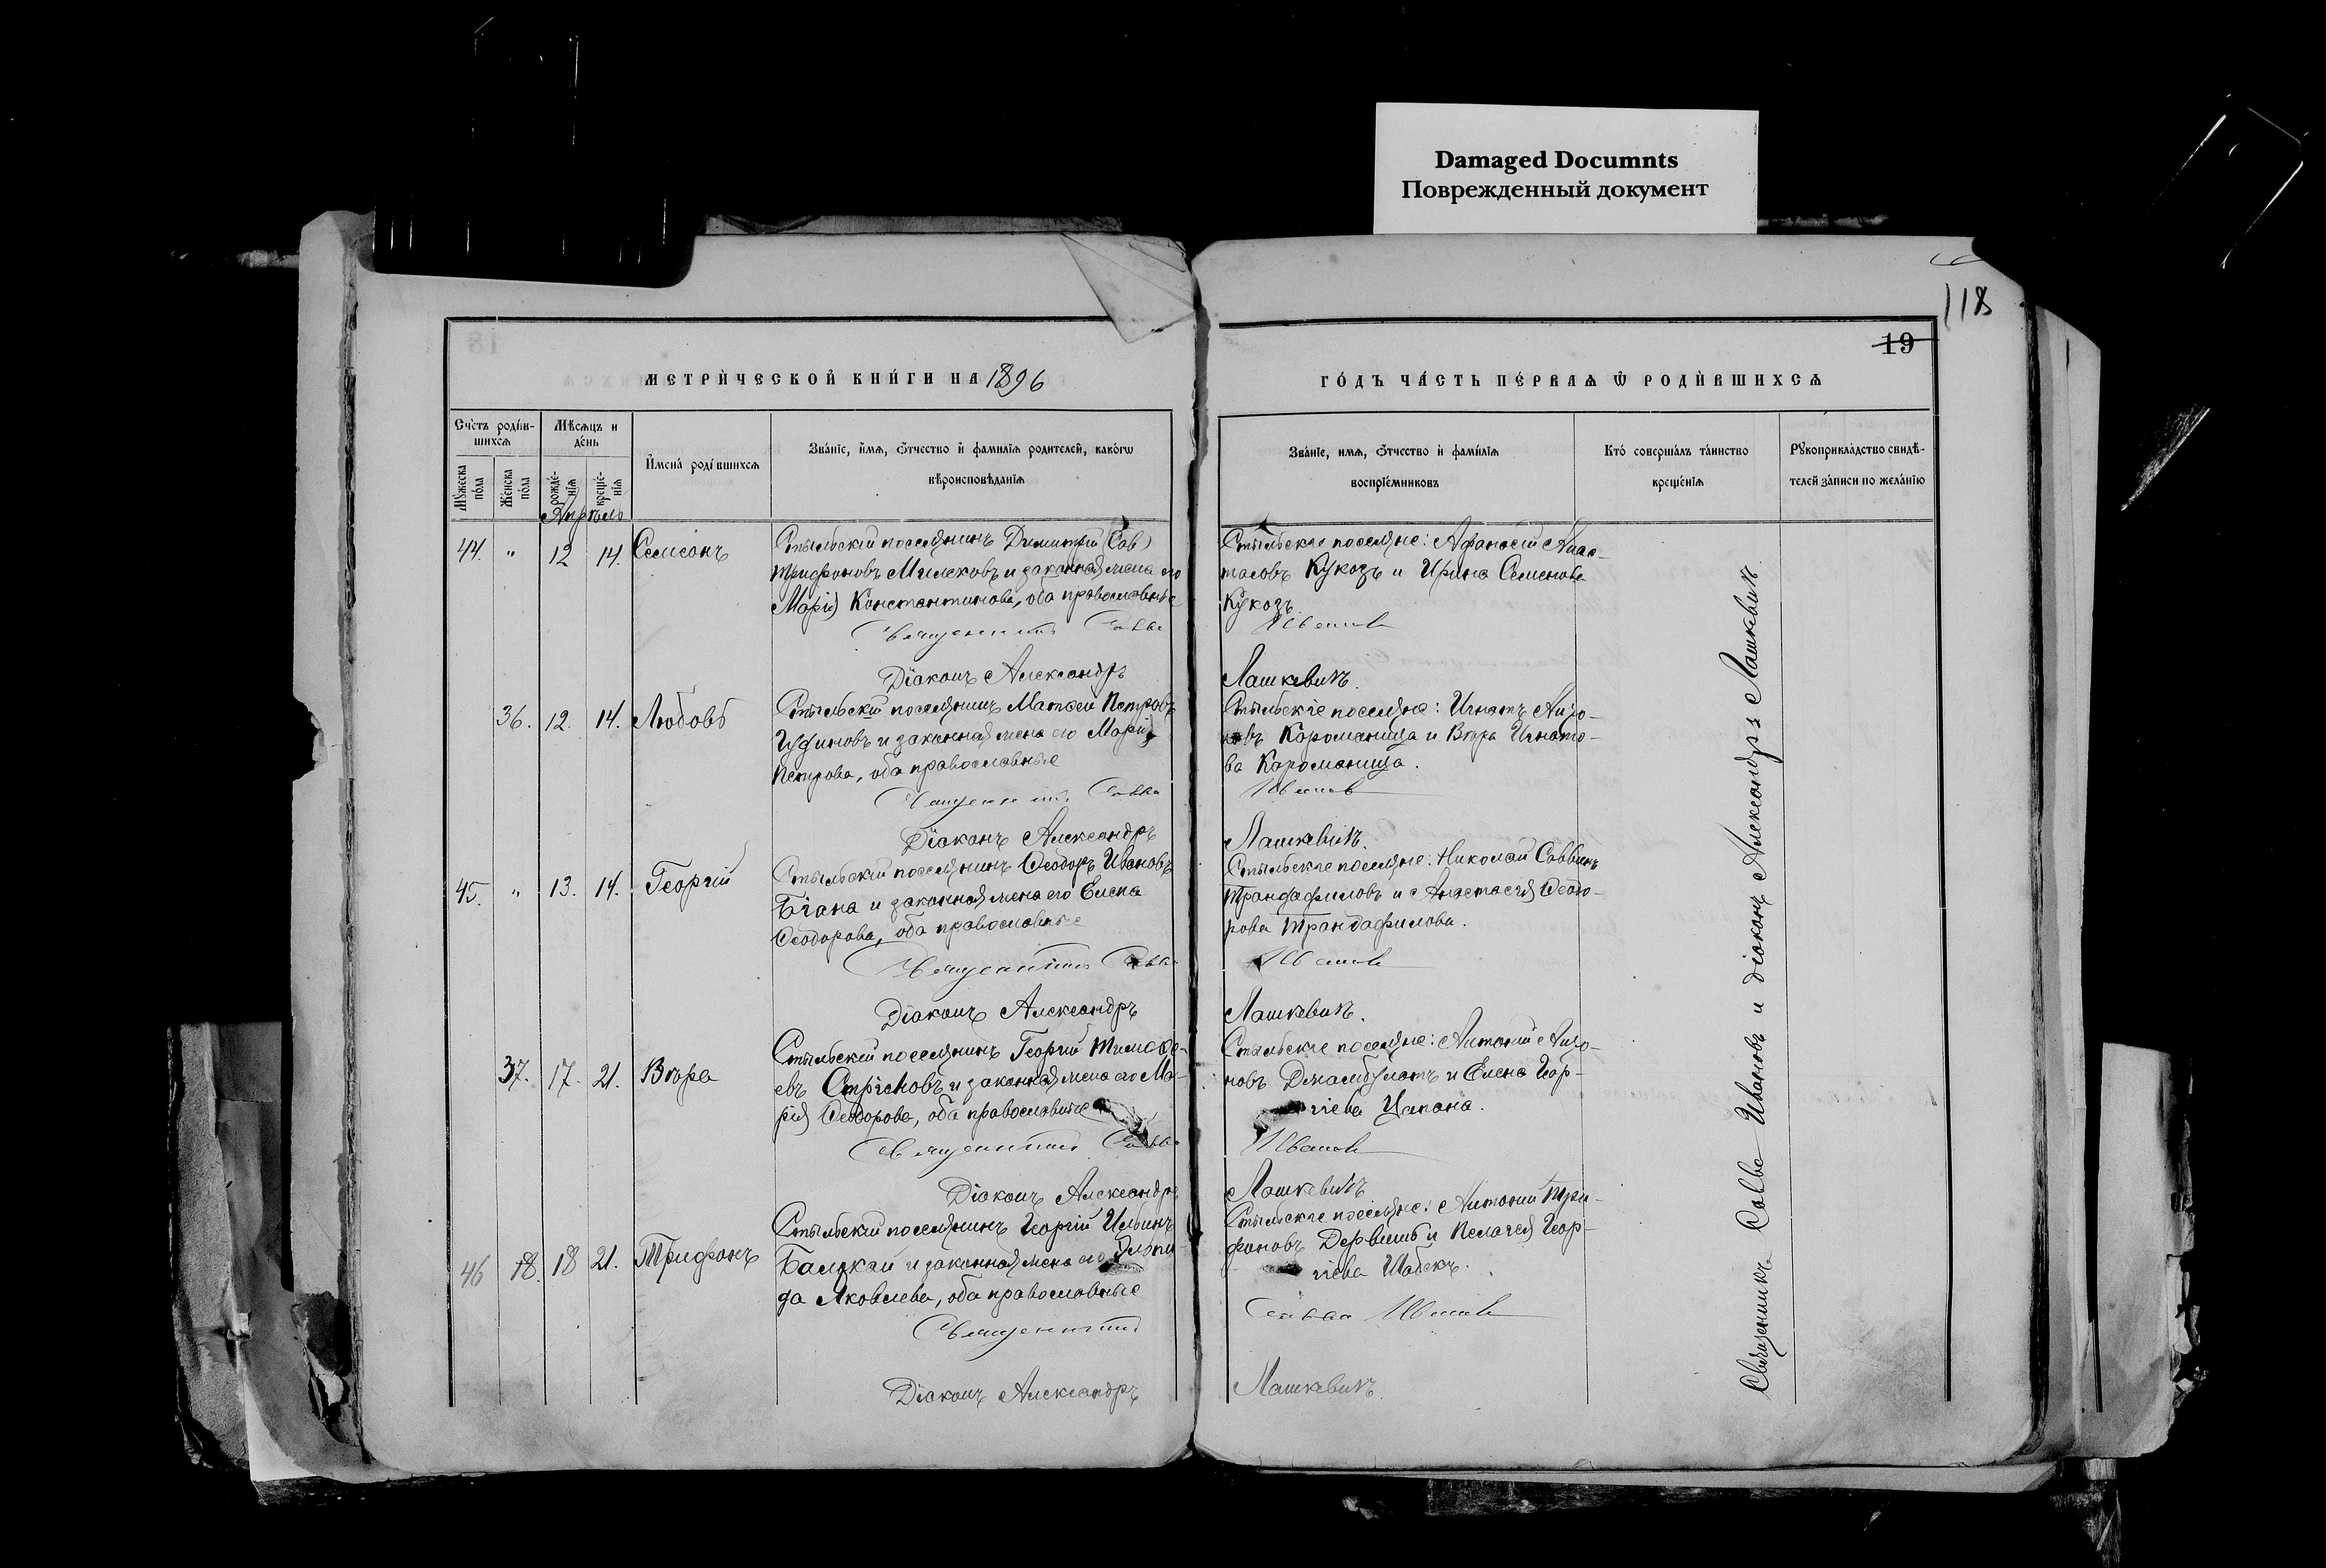 Damaged Documnts
Поврежденный документ
118
19
МЕТРИ́ЧЕСКОЙ КНИ́ГИ НА 1896
ГО́ДЪ ЧА́СТЬ ПЕ́РВАѦ Ѡ҆ РОДИ́ВШИХСѦ
Сче́тъ роди́в-
шихсѧ
Мѣ́сѧцъ и
де́нь
Мꙋ́жеска
по́ла
Же́нска
по́ла
рожде́-
нїѧ
креще́-
нїѧ
И҆мена̀ роди́вшихсѧ
Зва́нїе, и҆́мѧ, ѻ҆́тчество и҆ фами́лїѧ роди́телей, како́гѡ
вѣроисповѣ́данїѧ
Зва́нїе, и́мѧ, ѻ҆́тчество и҆ фами́лїѧ
воспрїе́мниковъ
Кто́ соверша́лъ та́инство
креще́нїѧ
Рꙋкоприкла́дство свидѣ́-
телей за́писи по жела́нїю
Апрѣль
44. " 12 14. Симеонъ
Стыльскій поселянинъ Димитрій (Сав)
Трифоновъ Милековъ и законная жена его
Марія Константинова, оба православные
Священникъ Савва
Діаконъ Александръ
Стыльскіе поселяне: Афанасій Анас-
тасовъ Кукозъ и Ирина Семенова
Кукозъ.
Ивановъ
Лашкевичъ.
36. 12. 14. Любовь
Стыльскій поселянинъ Матвей Петровъ
и законная жена его Марія
Петрова, оба православные
Священникъ Савва
Діаконъ Александръ
Стыльскіе поселяне: Игнатъ Анто-
новъ Караманица и Вѣра Игнато-
ва Караманица.
Ивановъ
Лашкевичъ.
45. " 13. 14. Георгій
Стыльскій поселянинъ Ѳеодоръ Ивановъ
Біана и законная жена его Елена
Ѳеодорова, оба православные
Священникъ Савва
Діаконъ Александръ
Стыльскіе поселяне: Николай Саввинъ
Трандафиловъ и Анастасія Ѳеодо-
рова Трандафилова.
Ивановъ
Лашкевичъ.
37. 17. 21. Вѣра
Стыльскій поселянинъ Георгій Тимоѳе-
евъ Стріоновъ и законная жена его Ма-
рія Ѳеодорова, оба православные
Священникъ Савва
Діаконъ Александръ
Стыльскіе поселяне: Антоній Анто-
новъ Джамбулатъ и Елена Геор-
гіева Цапана.
Ивановъ
Лашкевичъ
46 18. 18 21. Трифонъ
Стыльскій поселянинъ Георгій Ильинъ
Балжай и законная жена его Элпи-
да Яковлева, оба православные
Священникъ
Діаконъ Александръ
Стыльскіе поселяне: Антоній Три-
фоновъ Дервишъ и Пелагея Геор-
гіева Шабекъ.
Савва Ивановъ
Лашкевичъ.
Священникъ Савва Ивановъ и діаконъ Александръ Лашкевичъ